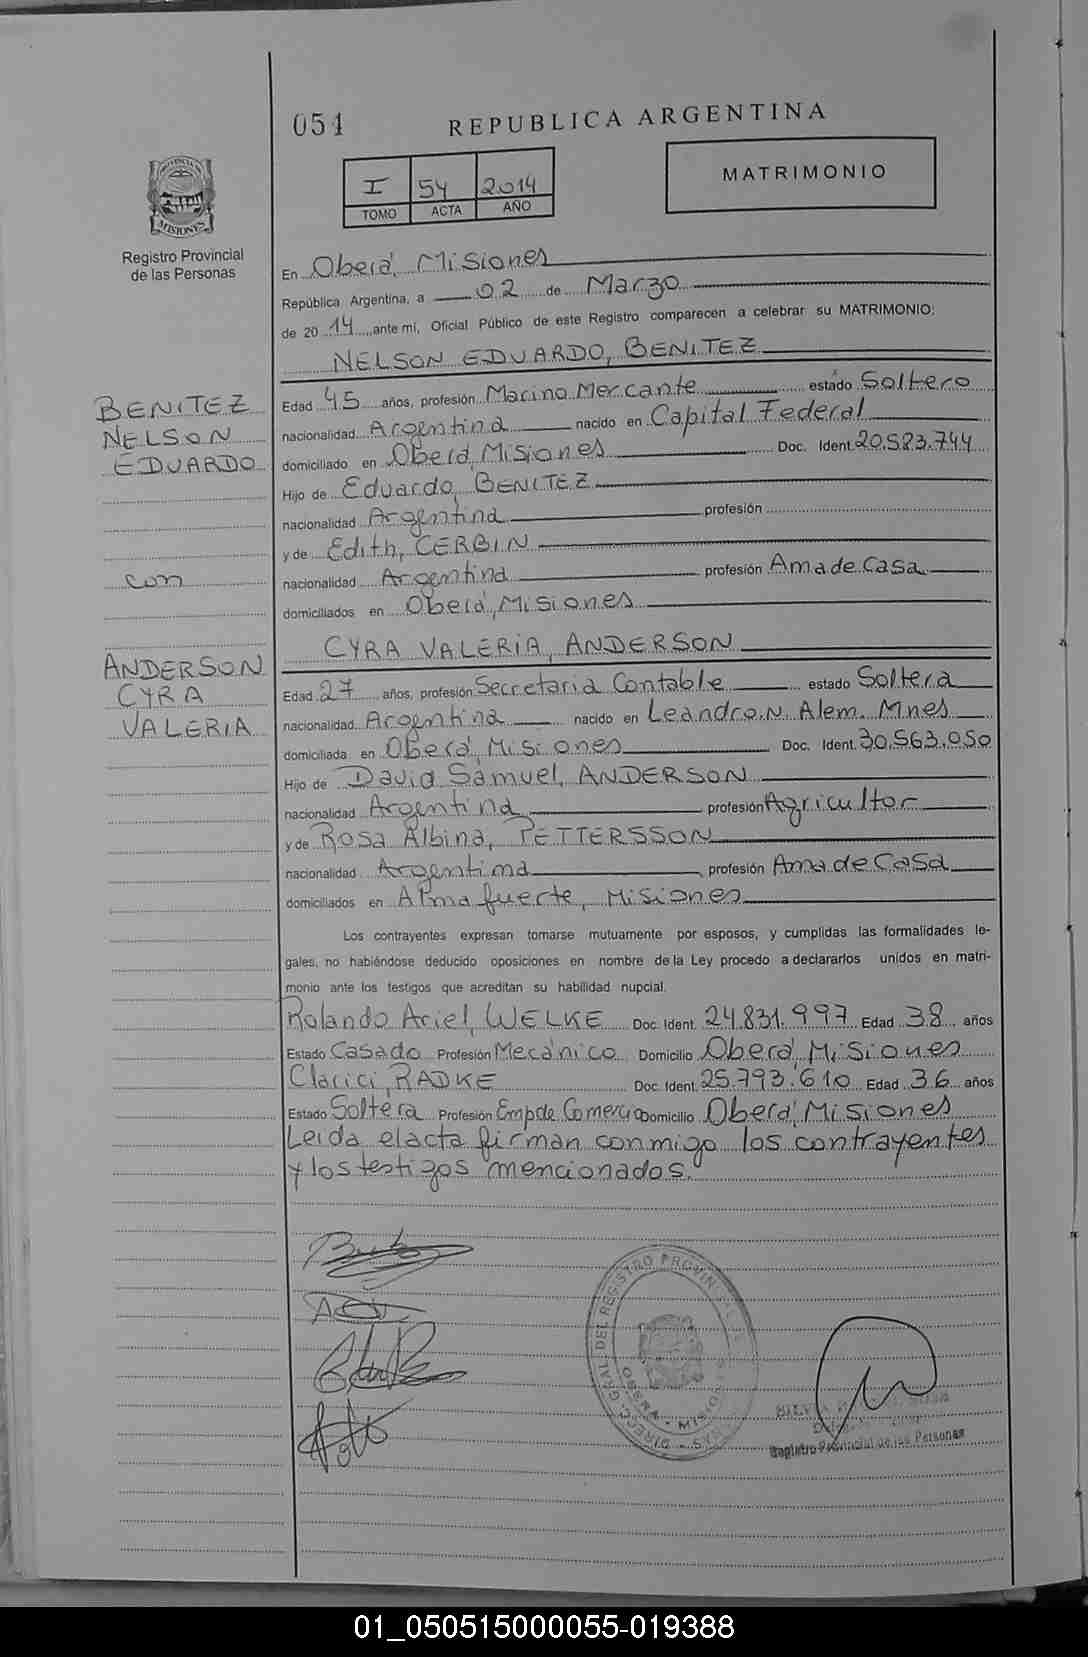 054
REPUBLICA ARGENTINA
I 54 2014
TOMO ACTA AÑO
MATRIMONIO
PROVINCIA DE
MISIONES
Registro Provincial
de las Personas
En Oberá, Misiones
República Argentina, a 02 de Marzo
de 20 14 ante mí, Oficial Público de este Registro comparecen a celebrar su MATRIMONIO:
NELSON EDUARDO, BENITEZ
BENITEZ
NELSON
EDUARDO
con
ANDERSON
CYRA
VALERIA
Edad 45 años, profesión Marino Mercante estado Soltero
nacionalidad Argentina nacido en Capital Federal
domiciliado en Oberá, Misiones Doc. Ident. 20.523.744
Hijo de Eduardo, BENITEZ
nacionalidad Argentina profesión
y de Edith, CERBIN
nacionalidad Argentina profesión Ama de Casa
domiciliados en Oberá, Misiones
CYRA VALERIA, ANDERSON
Edad 27 años, profesión Secretaria Contable estado Soltera
nacionalidad Argentina nacido en Leandro N. Alem. Mnes
domiciliada en Oberá, Misiones Doc. Ident. 30.563.050
Hijo de David Samuel, ANDERSON
nacionalidad Argentina profesión Agricultor
y de Rosa Albina, PETTERSSON
nacionalidad Argentina profesión Ama de Casa
domiciliados en Almafuerte, Misiones
Los contrayentes expresan tomarse mutuamente por esposos, y cumplidas las formalidades le-
gales, no habiéndose deducido oposiciones en nombre de la Ley procedo a declararlos unidos en matri-
monio ante los testigos que acreditan su habilidad nupcial.
Rolando Ariel, WELKE Doc. Ident. 24.831.997 Edad 38 años
Estado Casado Profesión Mecánico Domicilio Oberá, Misiones
Clarici, RADKE Doc. Ident. 25.793.610 Edad 36 años
Estado Soltera Profesión Emp de Comercio Domicilio Oberá, Misiones
Leida el acta firman conmigo los contrayentes
y los testigos mencionados.
DIRECC. GRAL. DEL REGISTRO PROVINCIAL
MISIONES
Registro Provincial de las Personas
01_050515000055-019388